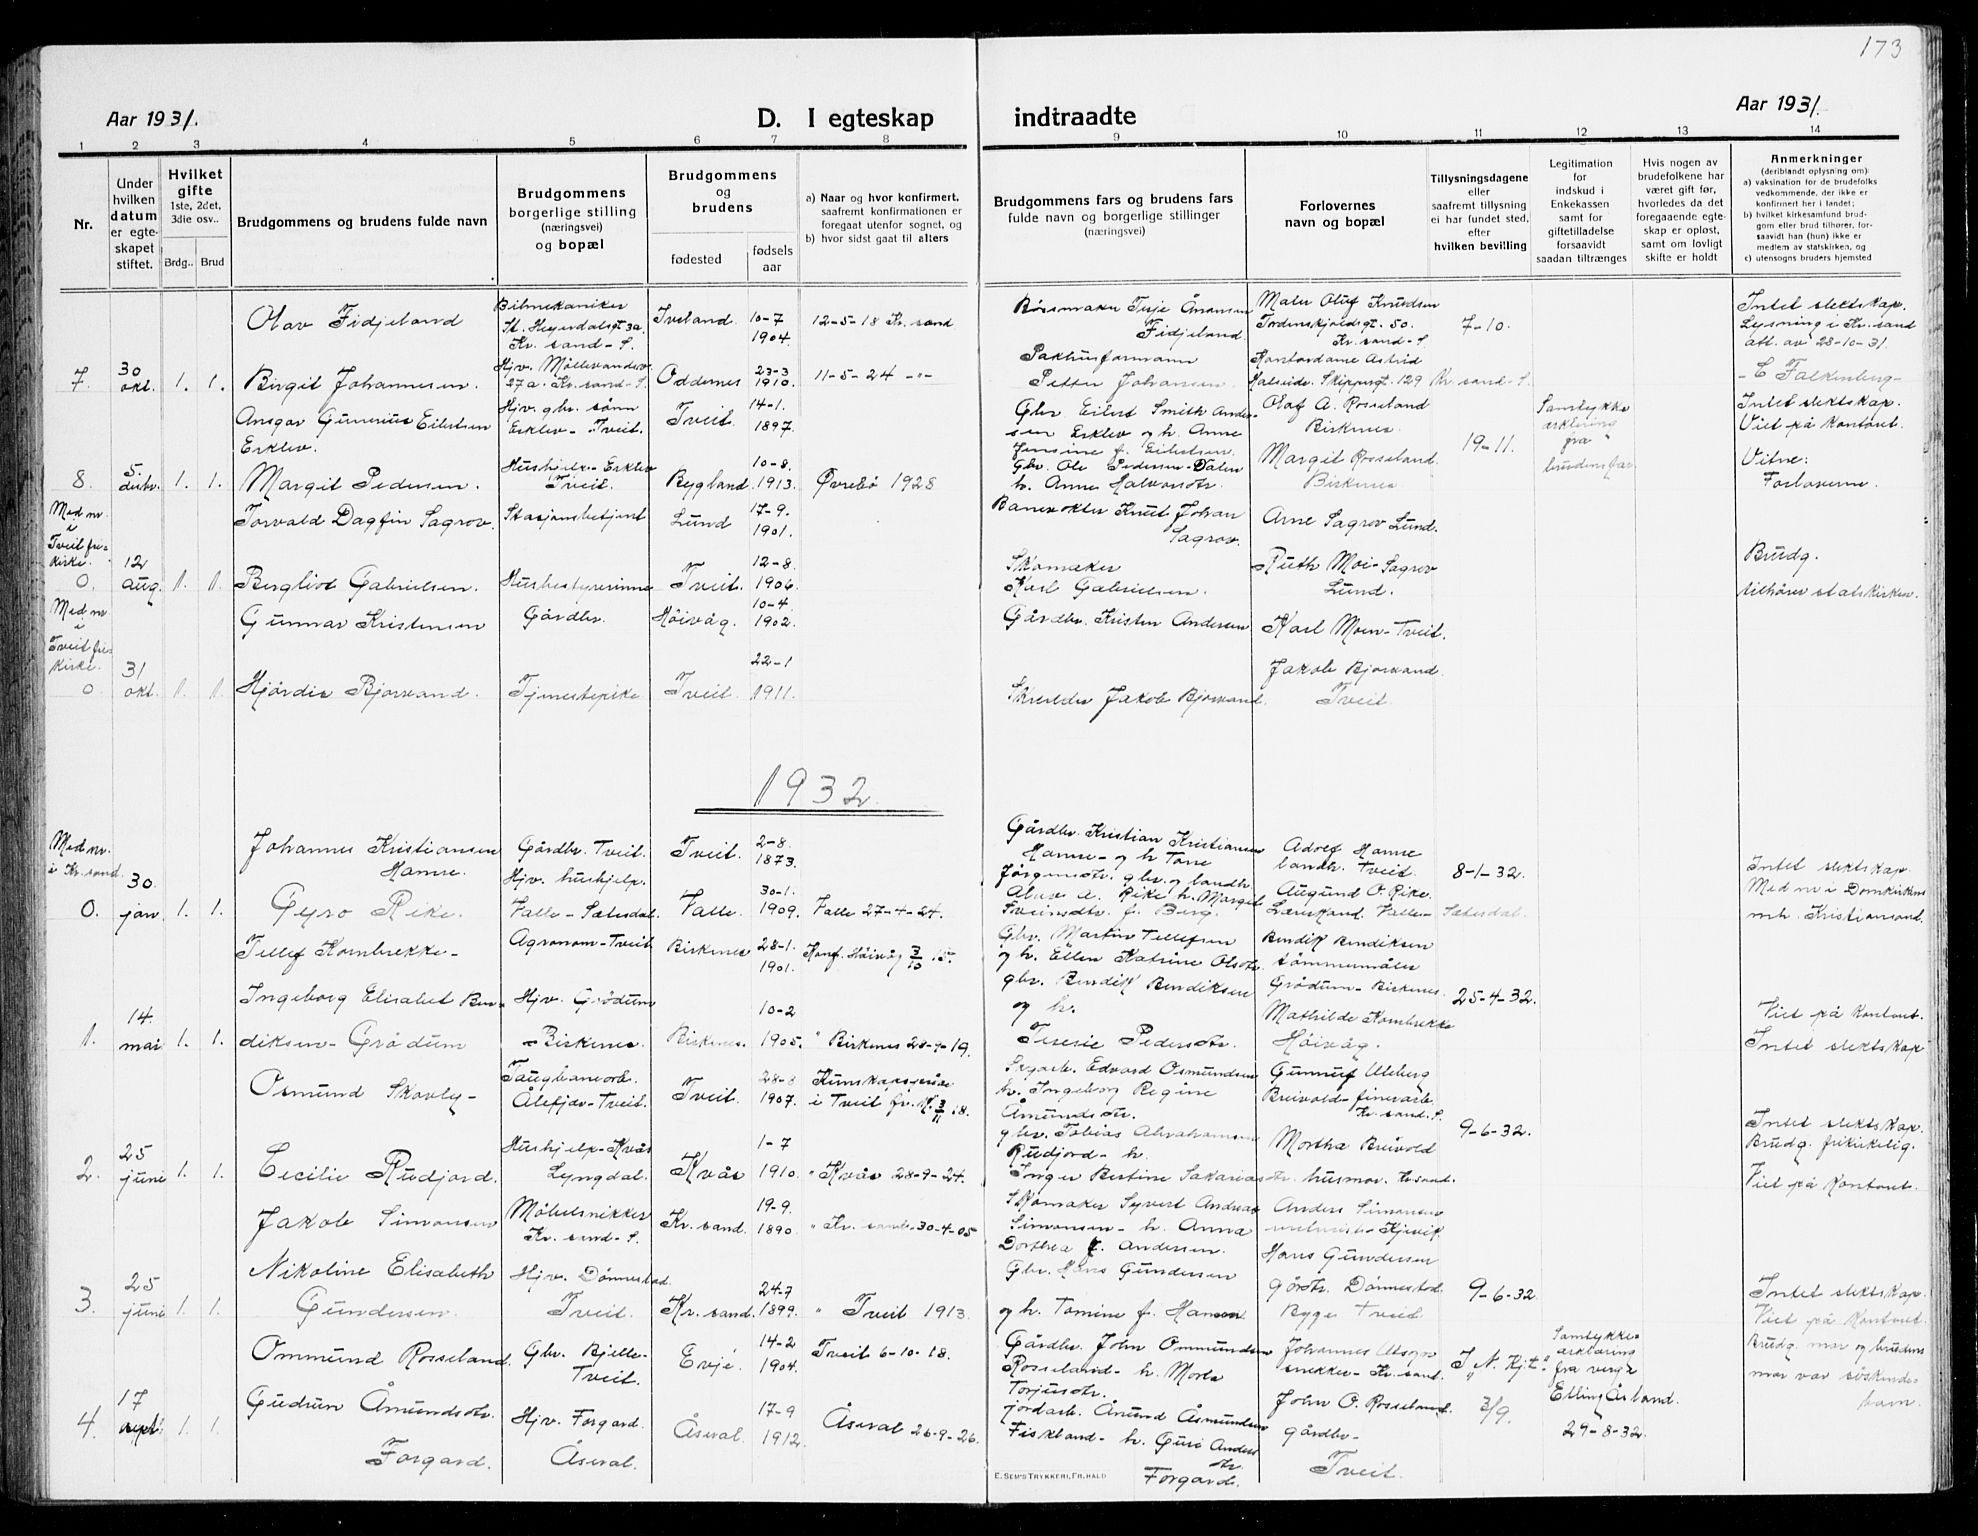 173
Aar 1931.
D. I egteskap indtraadte
Aar 1931.
1 2 3 4 5 6 7 8 9 10 11 12 13 14
Nr.
Under hvilken datum er egteskapet stiftet.
Hvilket gifte 1ste, 2det, 3die osv..
Brdg.. Brud
Brudgommens og brudens fulde navn
Brudgommens borgerlige stilling (næringsvei) og bopæl
Brudgommens og brudens
fødested
fødsels aar
a) Naar og hvor konfirmert, saafremt konfirmationen er foregaat utenfor sognet, og
b) hvor sidst gaat til alters
Brudgommens fars og brudens fars fulde navn og borgerlige stillinger (næringsvei)
Forlovernes navn og bopæl
Tillysningsdagene eller saafremt tillysning ei har fundet sted, efter hvilken bevilling
Legitimation for indskud i Enkekassen samt for giftetilladelse forsaavidt saadan tiltrænges
Hvis nogen av brudefolkene har været gift før, hvorledes da det foregaaende egteskap er opløst, samt om lovligt skifte er holdt
Anmerkninger (deriblandt oplysning om):
a) vaksination for de brudefolks vedkommende, der ikke er konfirmert her i landet;
b) hvilket kirkesamfund brudgom eller brud tilhører, forsaavidt han (hun) ikke er medlem av statskirken, og
c) utensogns bruders hjemsted
7. 30 okt. 1. 1.
Olav Fidjeland
Bilmekaniker
St. Hegerdalsgt 3a
Kr. sand-S.
Iveland
10-7
1904.
12-5-18 Kr. sand
Terje Aanonsen
Fidjeland.
Maler Oluf Knudsen
Tordenskjoldsgt. 50.
Kr. sand-S.
7-10.
Intet slektskap.
Lysning i Kr. sand
att. av 28-10-31.
Birgit Johannesen.
Hjv. Møllevandsv.
27a. Kr. sand-S.
Oddernes
23-3
1910.
11-5-24 -"-
Pakhusformann
Petter Johansen.
Kontordame Astrid
Skippergt. 129 Kr. sand-S.
- E Falkenberg-
8. 5. debr. 1. 1.
Ansgar Gunerius Eilertsen
Erklev.
Hjv. gbr. sønn
Erklev- Tveit.
Tveit.
14-1.
1897.
Gbr. Eilert Smith Andersen
Erklev og h. Anne
Jensine f. Eilertsen.
Olaf A. Rosseland
Birkenes
19-11.
Samtykke
erklæring
fra
brudens far.
Intet slektskap.
Viet på Kontoret.
Margit Pedersen.
Hushjelp- Erklev
Tveit.
Bygland.
10-8.
1913.
Øvrebø 1928
Gbr. Ole Pedersen-Dalen
h. Anne Halvorsdtr.
Margit Rosseland.
Birkenes
Vitne:
Forloverne.
Med nr. i Tveit frikirke.
0. 12 aug. 1. 1.
Torvald Dagfin Sagrov.
Stasjonsbetjent
Lund
17-9.
1901.
Banevokter Knut Johan
Sagrov.
Arne Sagrov Lund.
Bergliot Gabrielsen.
Husbestyrerinne
Tveit.
12-8
1906.
Skomaker
Karl Gabrielsen.
Ruth Moi-Sagrov
Lund.
Brudg.
tilhører statskirken.
Med nr. i Tveit frikirke.
0. 31 okt. 1. 1.
Gunnar Kristensen
Gårdbr.
Høivåg.
10-4.
1902.
Gårdbr. Kristen Andersen
Karl Moen-Tveit.
Hjørdis Bjorvand.
Tjenestepike
Tveit.
22-1
1911.
Skredder Jakob Bjorvand.
Jakob Bjorvand.
Tveit.
1932.
Med nr. i Kr. sand.
0. 30. jan. 1. 1.
Johannes Kristiansen
Hamre.
Gårdbr. Tveit.
Tveit.
2-8.
1873.
Gårdbr. Kristian Kristiansen
Hamre- og h Tone
Jørgensdtr.
Adolf Hamre
landh. Tveit.
8-1-32.
Intet slektskap.
Med nr i Domkirkens
mh. Kristiansand.
Gyro Rike.
Hjv. hushjelp.
Valle-Setesdal.
Valle.
30-1.
1909.
Valle 27-4-24.
gbr. og landh.
Olav A. Rike h. Margit
Sveinsdtr. f. Berg.
Augund O. Rike.
Lensmand. Valle- Setesdal.
1. 14. mai 1. 1.
Tellef Kornbrekke-
Agronom-Tveit
Birkenes
28-1.
1901.
Konf. Høivåg 3/10 15.
Gbr. Martin Tellefsen
og h. Ellen Katrine Olsdtr.
Bendik Bendiksen
tømmermåler
Grødum- Birkenes.
25-4-32.
Viet på Kontoret.
Intet slektskap
Ingeborg Elisabet Ben-
diksen- Grødum
Hjv. Grødum
- Birkenes.
Birkenes.
10-2
1905.
" Birkenes 28-9-19.
gbr. Bendik Bendiksen
og h.
Terese Pedersdtr.
Mathilde Kornbrekke
Høivåg.
2. 25 juni 1. 1.
Osmund Skovly-
Taugbanearb.
Ålefjær-Tveit.
Tveit.
28-8
1907.
Kunskapsprøve
i Tveit fr. k. 3/11 18.
Edvard Osmundsen
h. Ingeborg Regine
Åmundsdtr.
Gunnuf Uleberg
9-6-32.
Intet slektskap.
Brudg. frikirkelig.
Viet på Kontoret.
Cecilie Rudjord.
Hushjelp-Kvås
Lyngdal.
Kvås
1-7
1910.
" Kvås 28-9-24.
gbr. Tobias Abrahamsen
Rudjord- h.
Inger Bertine Sakariasdtr.
Martha Breivold
husmor. Kr. sand.
3. 25 juni 1. 1.
Jakob Simonsen
Møbelsnikker
Kr. sand-S.
Kr. sand.
19-9.
1890.
" Kr. sand-30-4-05
Skomaker Syvert Andreas
Simonsen- h. Anna
Dorthea f. Andersen.
Anders Simonsen
Kjevik
9-6-32.
Nikoline Elisabeth
Gundersen.
Hjv. Dønnestad
Tveit.
Kr. sand.
24-7
1899.
" Tveit 1913.
Gbr. Hans Gundersen
og h. Tomine f. Hansen.
Hans Gundersen
Dønnestad.
Tveit.
Intet slektskap.
Viet på Kontoret.
4. 17 sept. 1. 1.
Ommund Rosseland.
Gbr. Bjelle-
Tveit.
Evje
14-2
1904.
Tveit 6-10-18.
Gårdbr. John Ommundsen
Rosseland- h. Marte
Torjusdtr.
Johannes
snekker- Kr. sand.
I "N. Kjt."
3/9.
Samtykke-
erklæring
fra verge
Elling Åsland.
29-8-32.
Brudg. mor og brudens
mor var søskende-
barn.
Gudrun Åmundsdtr.
Forgard.
Hjv. Forgard.
Åseral.
Åseral.
17-9
1912.
Åseral 26-9-26.
jordarb. Åmund Åsmundsen
Fiskland- h. Guro Anders
dtr.
Forgard.
John O. Rosseland.
gårdbr-
Tveit.
E. SEM'S TRYKKERI, FR.HALD